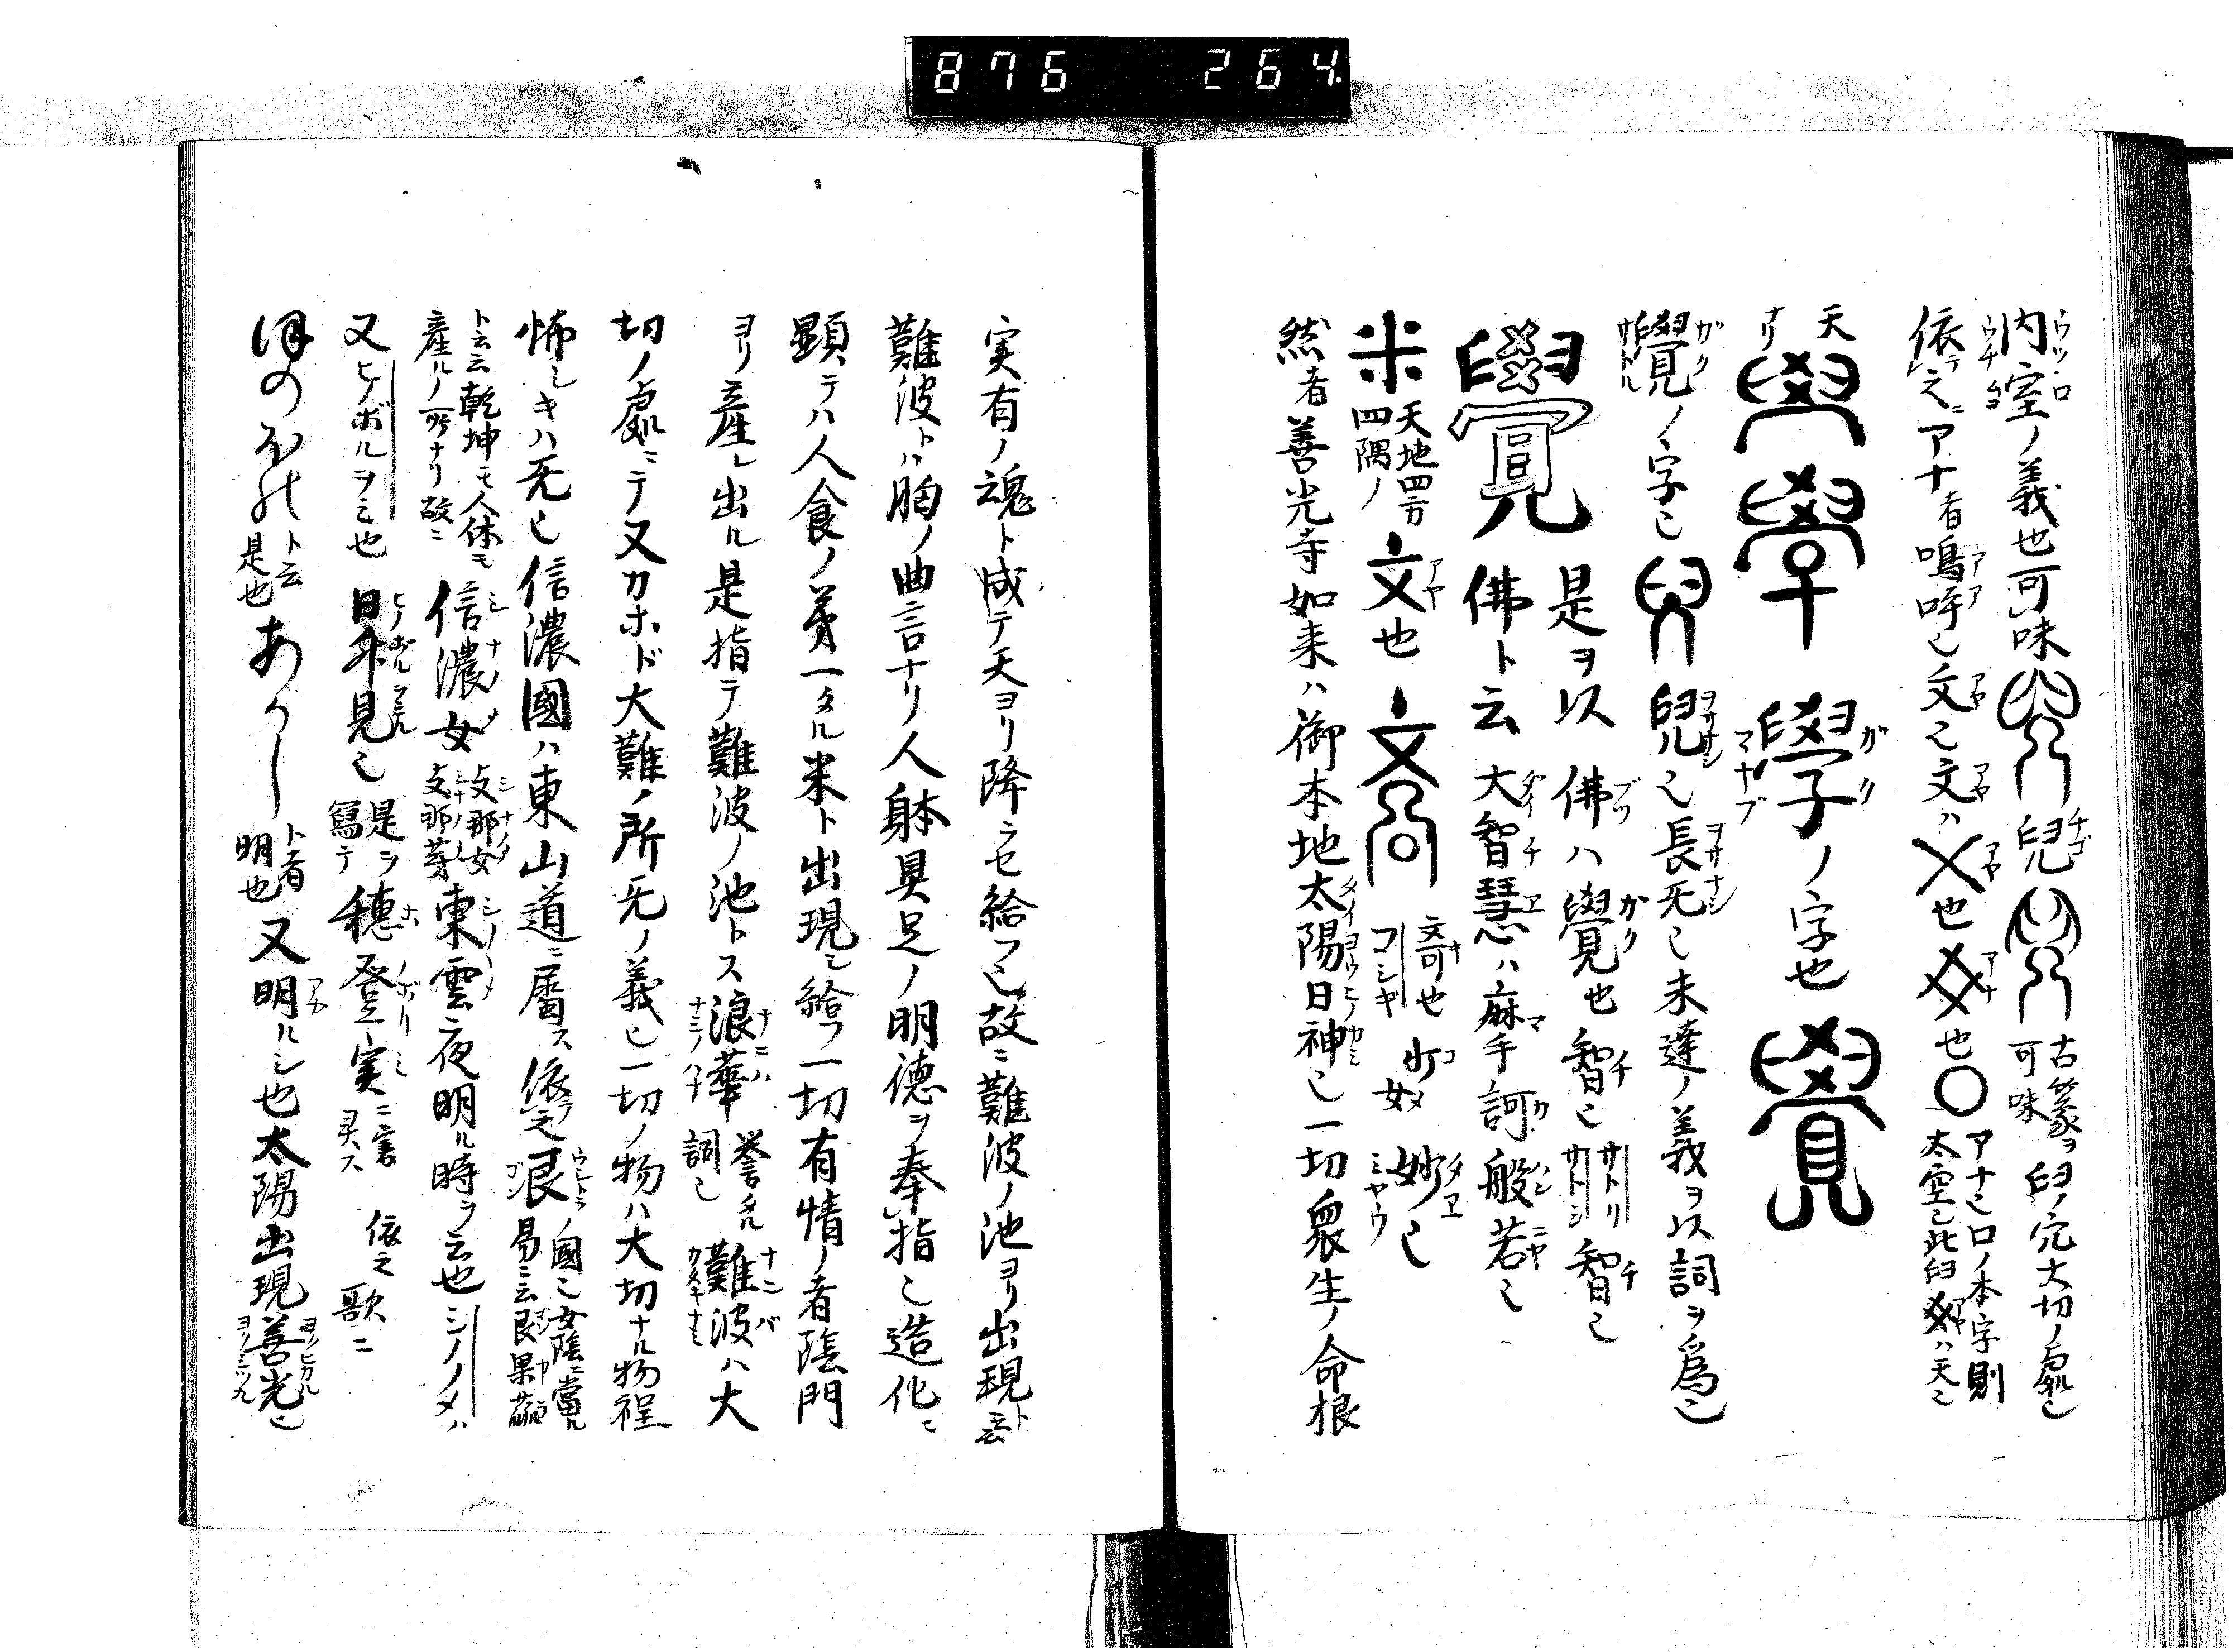 876 264.
内室ノ義也可味 兒 古篆ヲ可味 臼ノ穴大切ノ處也
依テ之ニアナ者嗚呼也文也文ハ㐅也 也〇 アナ也口ノ本字則太空也此臼 ハ天也
天ナリ 學 學ノ字也 覺
覺ノ字也 兒 兒也長无也未達ノ義ヲ以詞ヲ為也
是ヲ以佛ハ覺也智也 サトリ サトシ 智也
覺 佛ト云大智慧ハ麻訶般若也
米 天地四方四隅ノ 文也 奇也 コシキ 少女 妙也
然者善光寺如来ハ御本地太陽日神也一切衆生ノ命根
実有ノ魂ト成テ天ヨリ降ラセ給フ也故ニ難波ノ池ヨリ出現ト云
難波トハ胸ノ曲言ナリ人躰具足ノ明徳ヲ奉指也造化ニ
顕テハ人食ノ第一タル米ト出現シ給フ一切有情ノ者陰門
ヨリ産レ出ル是指テ難波ノ池トス浪華 誉タル詞也 難波ハ大
切ノ處ニテ又カホド大難ノ所无ノ義也一切ノ物ハ大切ナル物程
怖シキハ无也信濃國ハ東山道ニ属ス依テ之艮ノ國也女陰ニ當ル易ニ云艮果蓏
ト云云乾坤モ人体モ産ルノ所ナリ故ニ 信濃女 支那女 支那芽 東雲ニ夜明ル時ヲ云也シノノメハ
又ヒノボルヲミ也 日昇見也 是ヲ寫テ 穂登実ニ寄ヨス 依之歌ニ
ほのほのト云是也 あかしト者明也 又明ルシ也太陽出現善光也